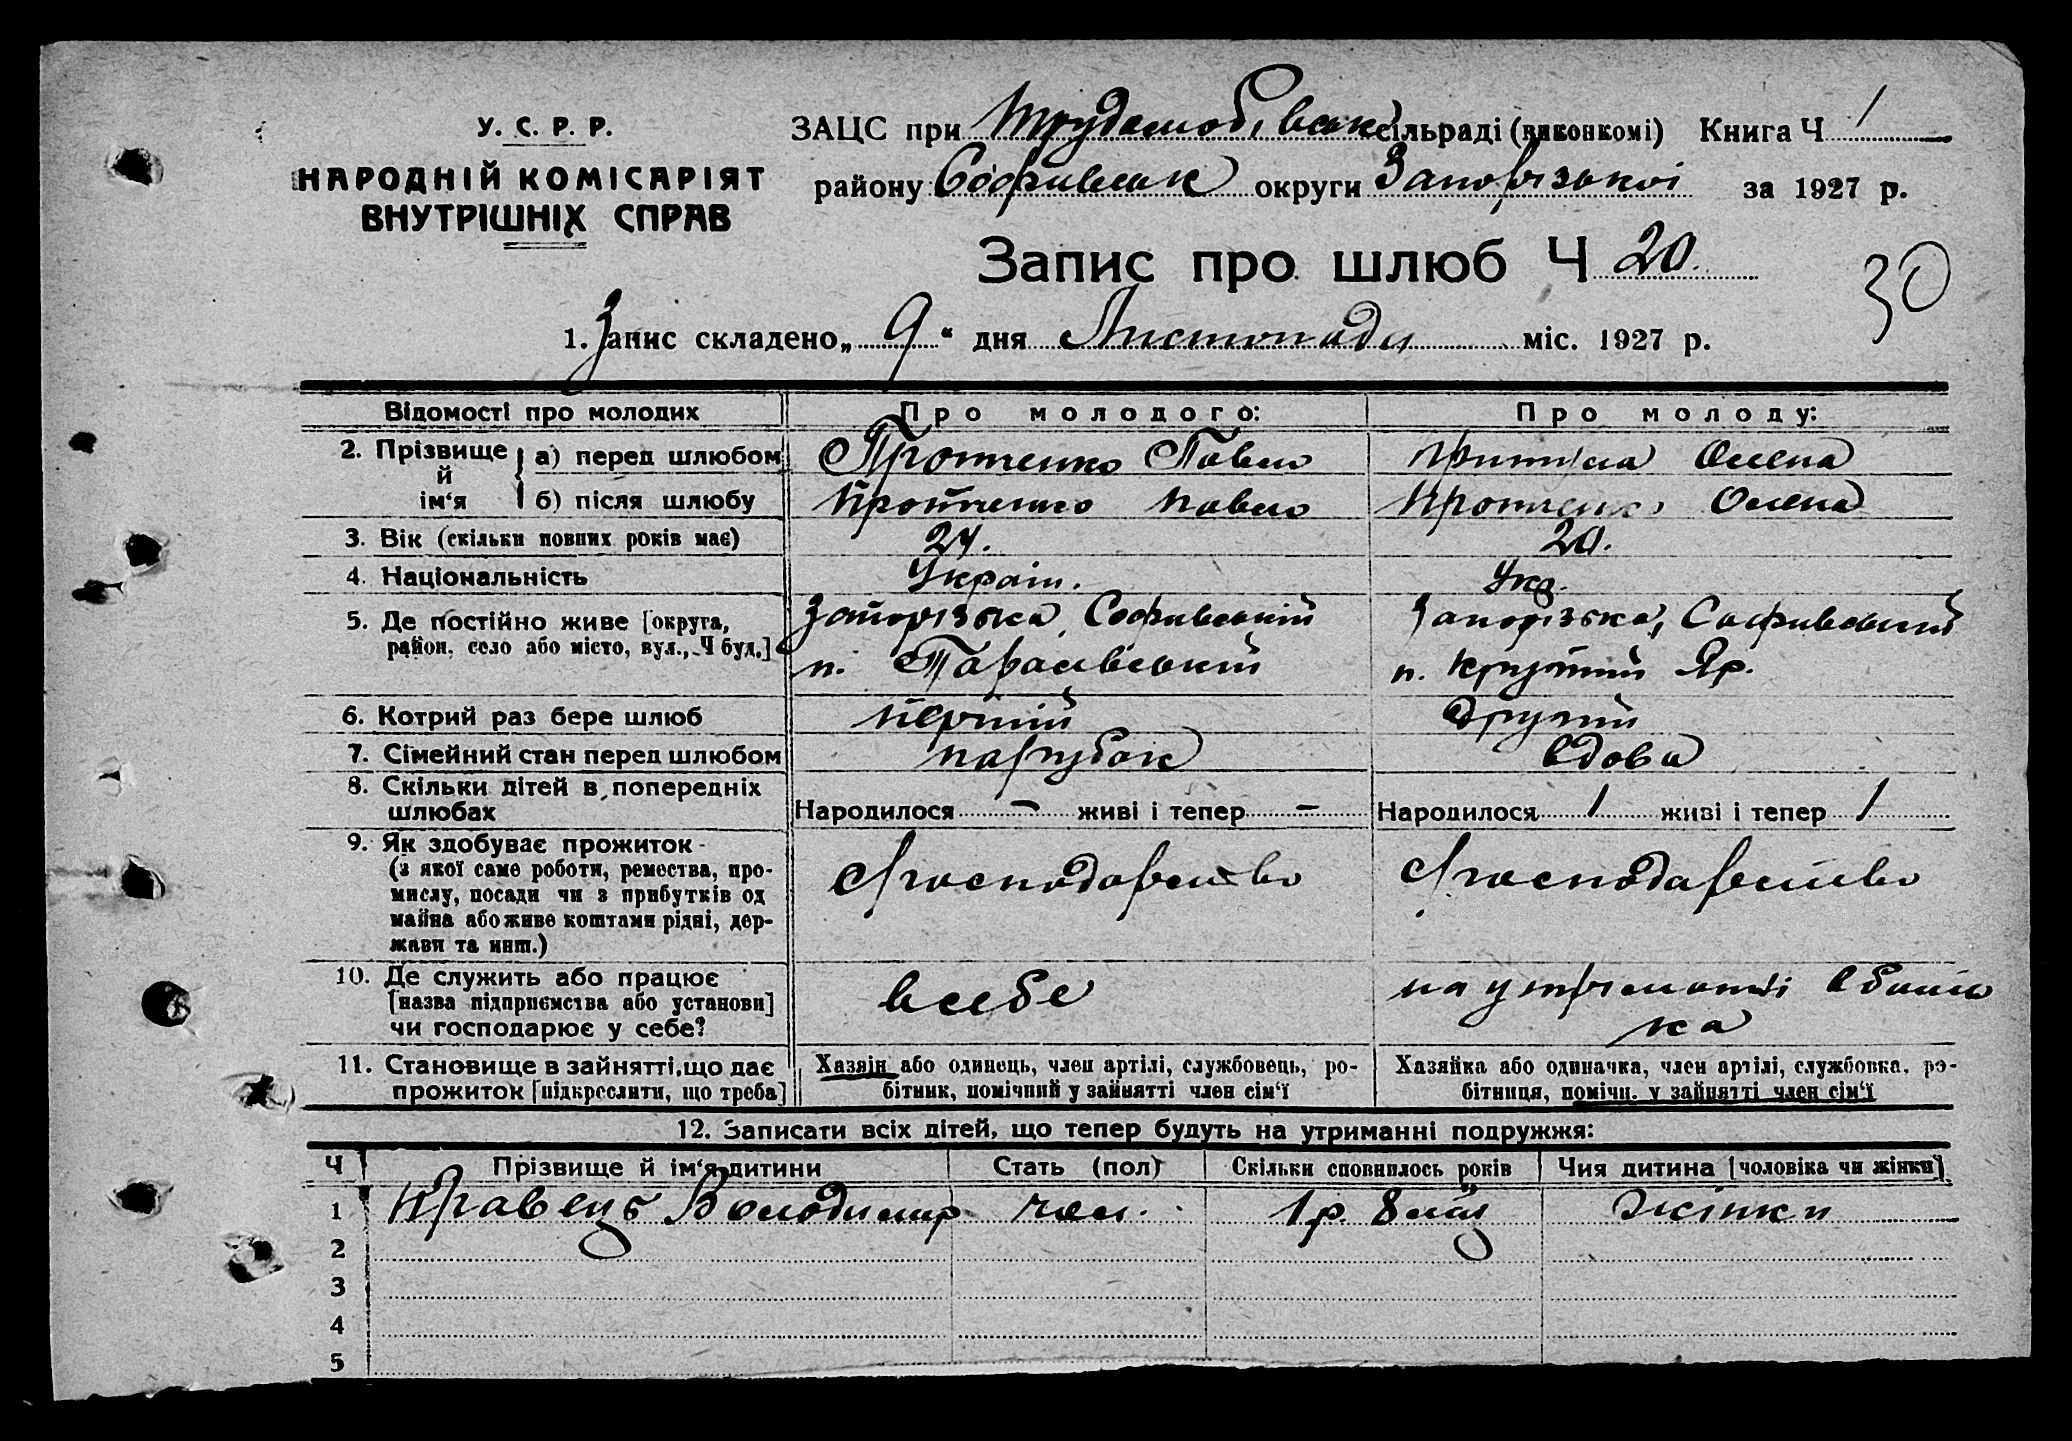 У. С. Р. Р.
НАРОДНІЙ КОМІСАРІЯТ
ВНУТРІШНІХ СПРАВ
ЗАЦС при Трудолюбівськ сільраді (виконкомі) Книга Ч 1
району Софивськ округи Запорізької за 1927 р.
Запис про шлюб Ч 20.
30
1. Запис складено „ 9 “ дня Листопада міс. 1927 р.
Відомості про молодих Про молодого: Про молоду:
2. Прізвище й ім‘я
а) перед шлюбом Протченко Павло Олена
б) після шлюбу Протченко Павло Протченко Олена
3. Вік (скільки повних років має) 24. 20.
4. Національність Україн. Укр.
5. Де постійно живе [округа, Запорізька, Софивський Запорізька, Софивський
район, село або місто, вул., Ч буд.] п. Тарасівський п. Крутий Яр.
6. Котрий раз бере шлюб перший другий
7. Сімейний стан перед шлюбом парубок вдова
8. Скільки дітей в попередніх
шлюбах Народилося – живі і тепер – Народилося 1 живі і тепер 1
9. Як здобуває прожиток
(з якої саме роботи, ремества, про-
мислу, посади чи з прибутків од
майна або живе коштами рідні, дер-
жави та инш.)
Господарство Господарство
10. Де служить або працює
[назва підприємства або установи]
чи господарює у себе?
в себе
на утриманні в батька
11. Становище в зайнятті, що дає
прожиток [підкреслити, що треба]
Хазяїн або одинець, член артілі, службовець, ро-
бітник, помічний у зайнятті член сім‘ї
Хазяйка або одиначка, член артілі, службовка, ро-
бітниця, помічн. у зайнятті член сім‘ї
12. Записати всіх дітей, що тепер будуть на утриманні подружжя:
Ч Прізвище й ім‘я дитини Стать (пол) Скільки сповнилось років Чия дитина [чоловіка чи жінки]
1 Кравець Володимир чол. 1 р. 8 міс жінки
2
3
4
5